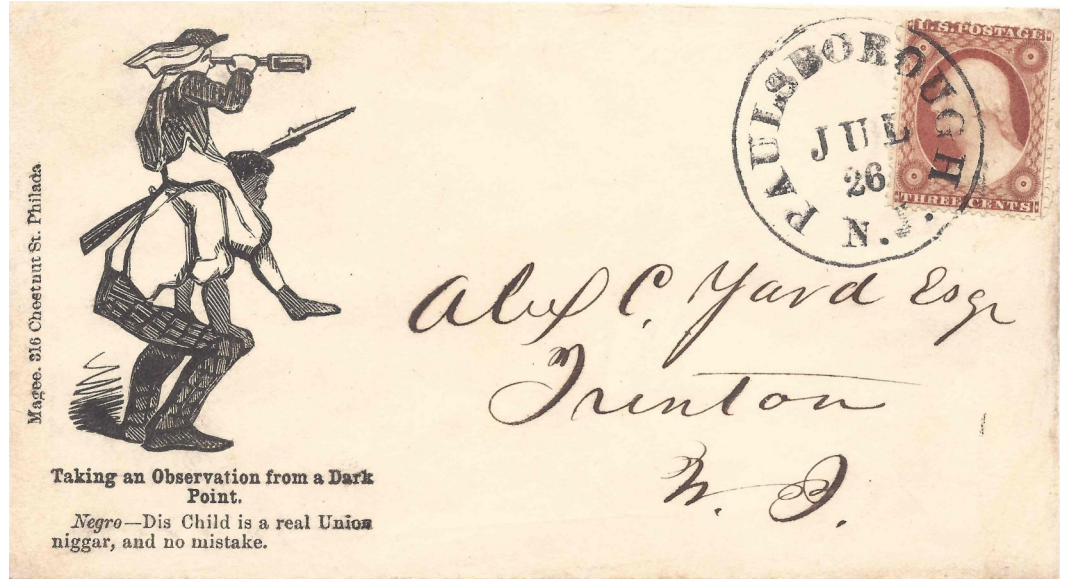 Magee. 316 Chestnut St. Philada
Taking an Observation from a Dark
Point.
Negro—Dis Child is a real Union
niggar, and no mistake.
PAULSBOROUGH
JUL
26
N.J.
U.S. POSTAGE
THREE CENTS
Alex C. Yard Esqr
Trenton
N. J.